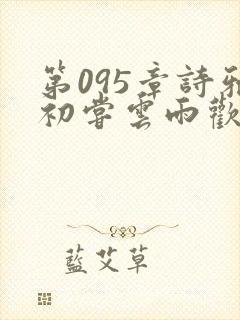 第095章詩
初嘗雲雨歡
藍艾草